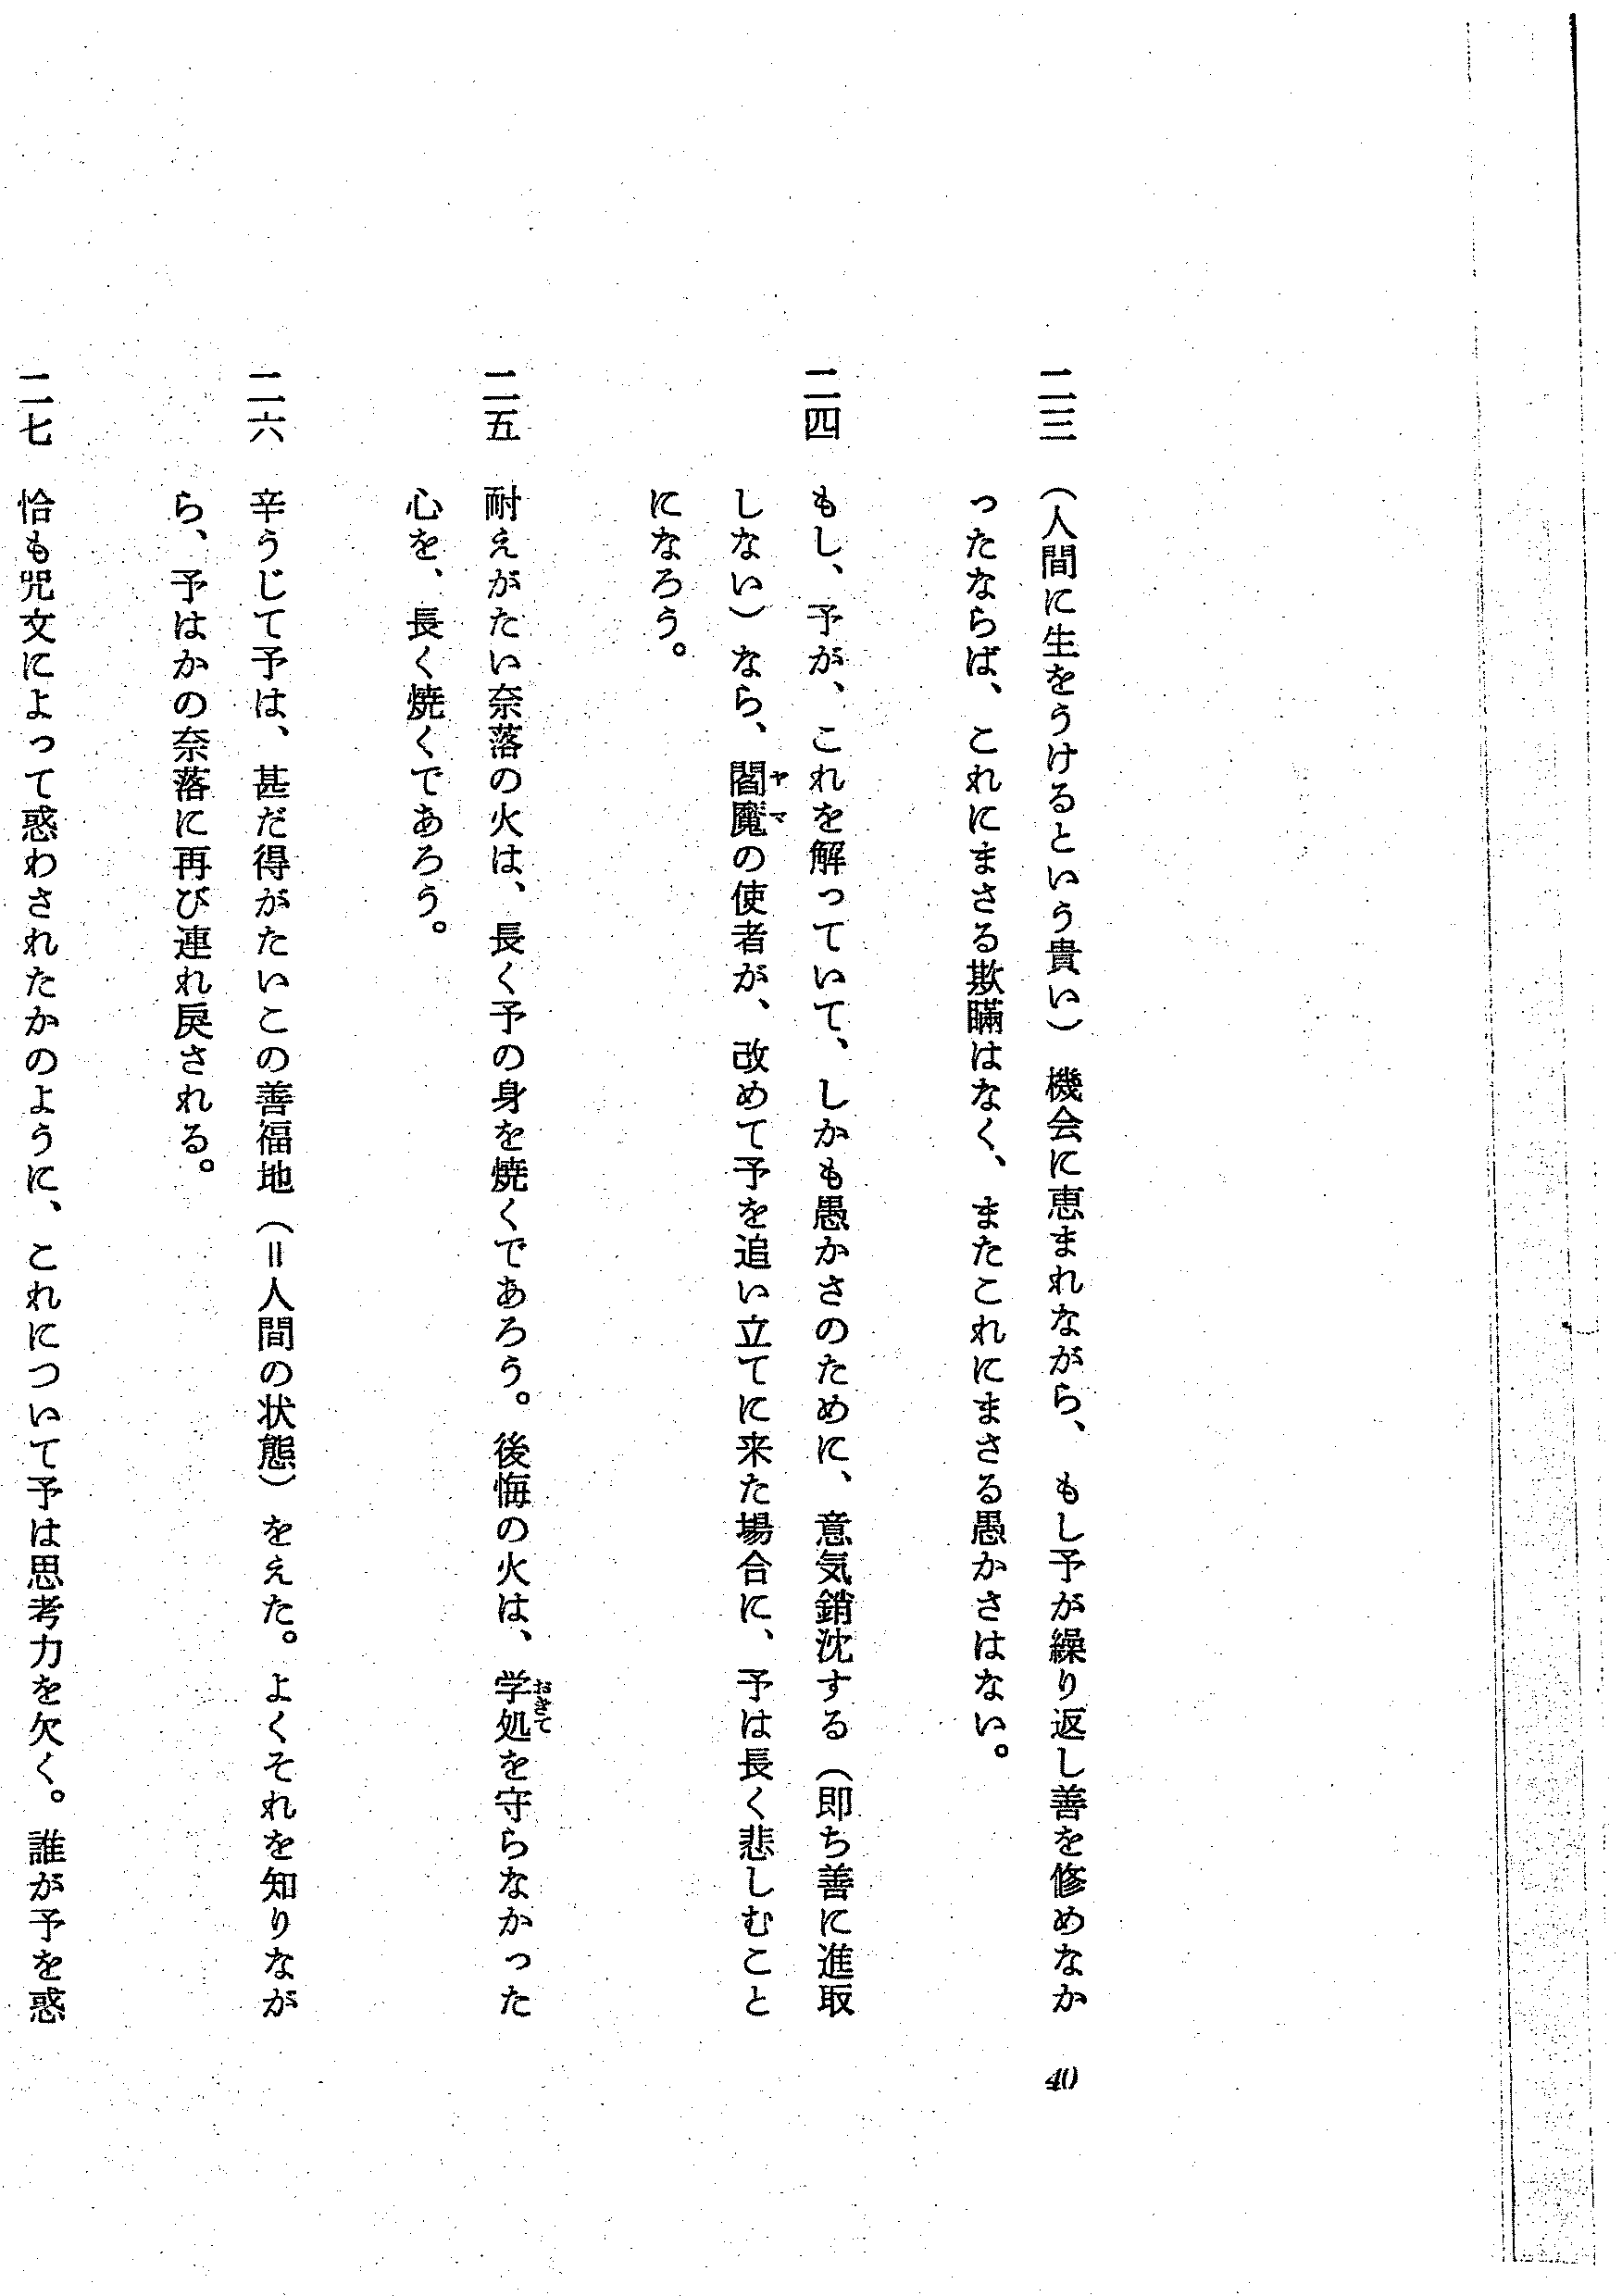 二三　（人間に生をうけるという貴い）機会に恵まれながら、もし予が繰り返し善を修めなか
ったならば、これにまさる欺瞞はなく、またこれにまさる愚かさはない。
二四　もし、予が、これを解っていて、しかも愚かさのために、意気銷沈する（即ち善に進取
しない）なら、閻魔の使者が、改めて予を追い立てに来た場合に、予は長く悲しむこと
ヤマ
になろう。
二五　耐えがたい奈落の火は、長く予の身を焼くであろう。後悔の火は、学処を守らなかった
おきて
心を、長く焼くであろう。
二六　辛うじて予は、甚だ得がたいこの善福地（＝人間の状態）をえた。よくそれを知りなが
ら、予はかの奈落に再び連れ戻される。
二七　恰も咒文によって惑わされたかのように、これについて予は思考力を欠く。誰が予を惑
40